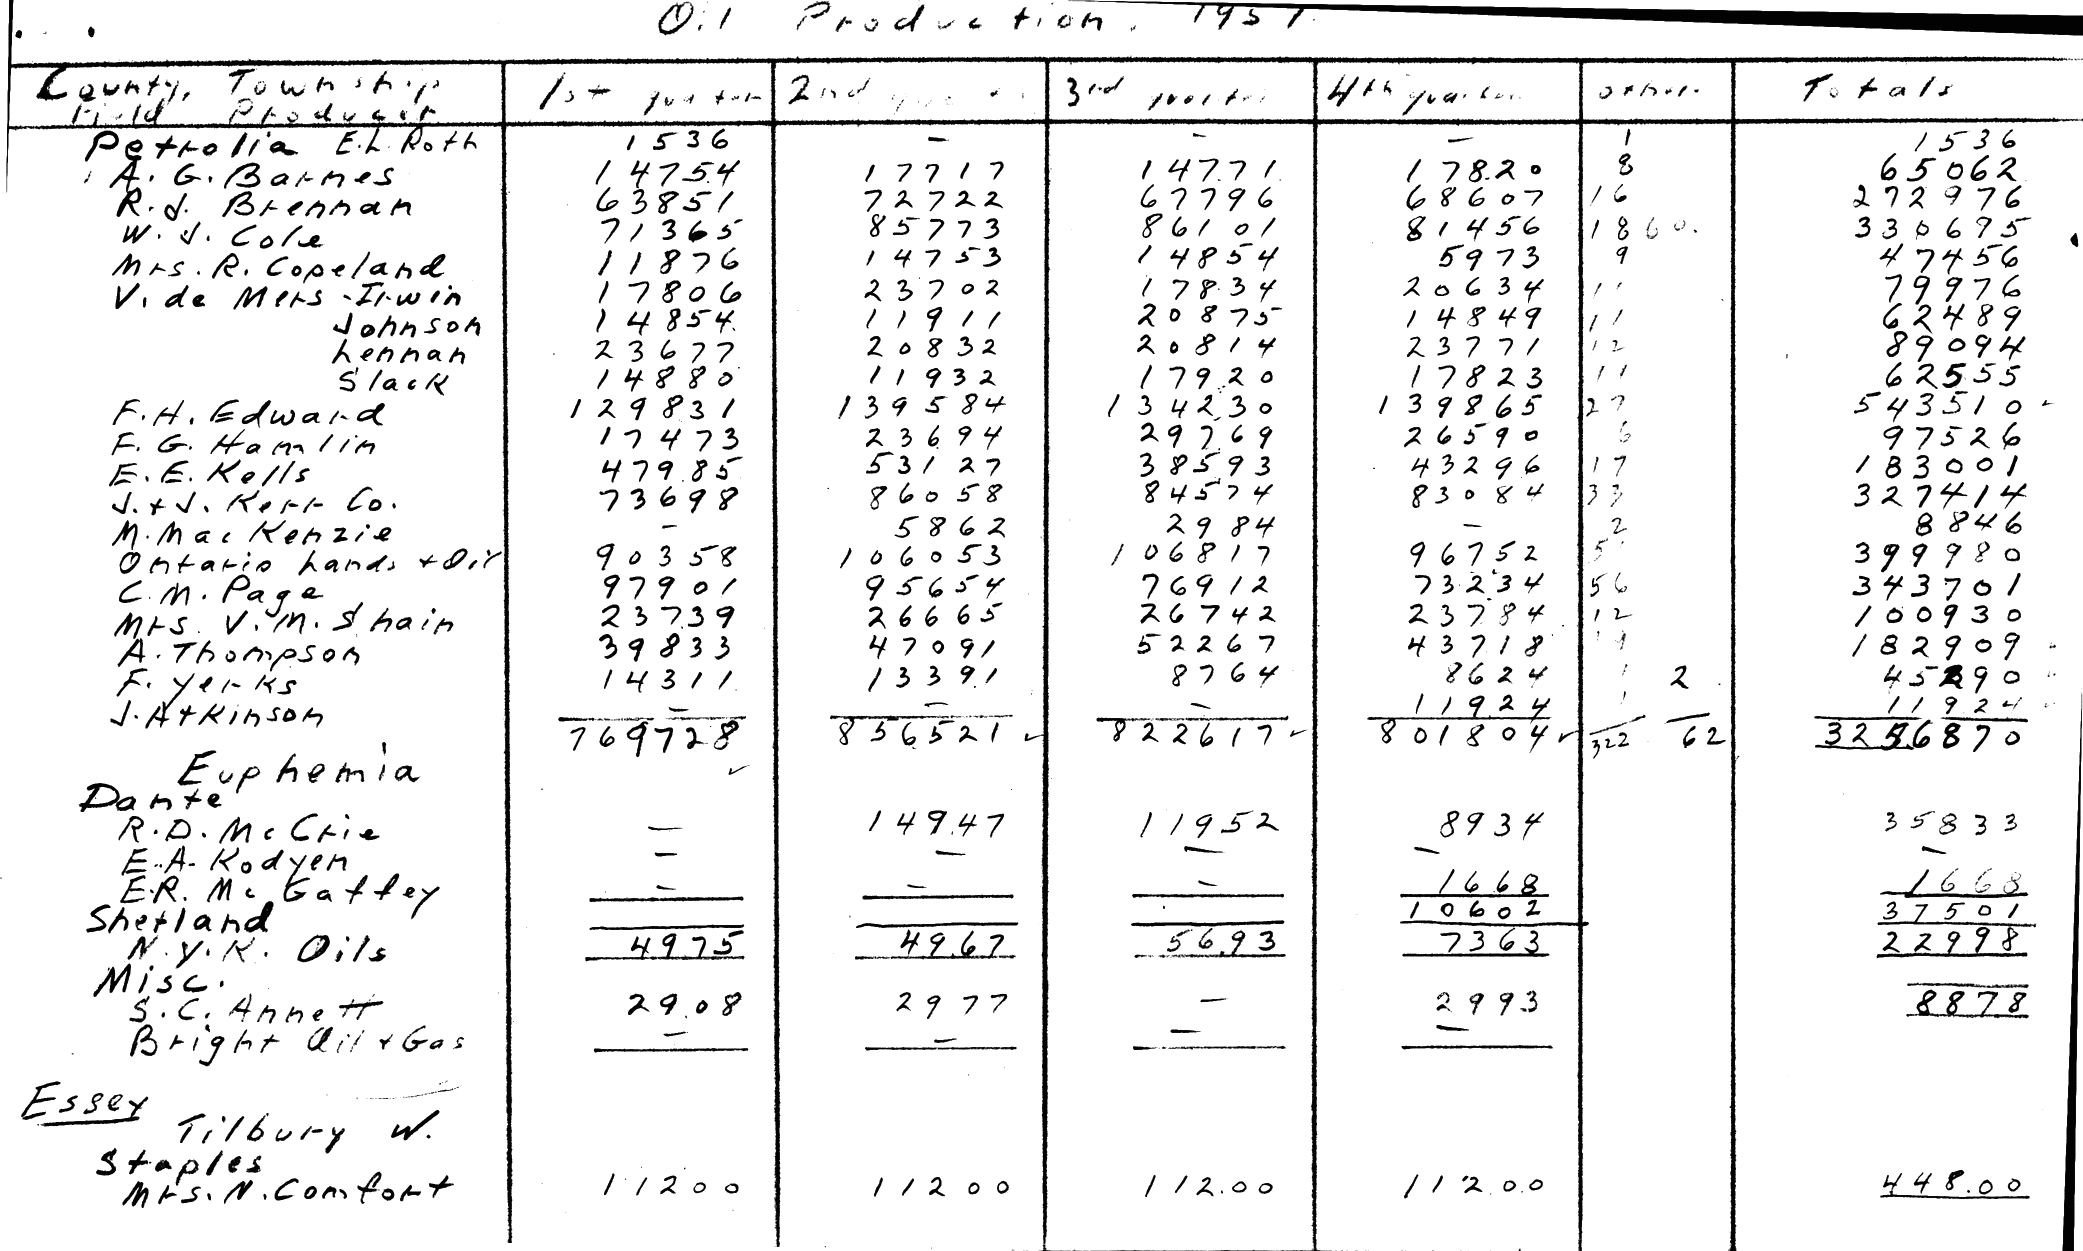 Oil Production. 1951.
County, Township 1st quarter 2nd quarter 3rd quarter 4th quarter other Totals
Field Producer
Petrolia E.L. Roth 1536 – – – 1 1536
A. G. Barnes 14754 17717 14771 17820 8 65062
R. J. Brennan 63851 72722 67796 68607 16 272976
W. J. Cole 71365 85773 86101 81456 18 60. 330695
Mrs. R. Copeland 11876 14753 14854 5973 9 47456
V. de Mers - Irwin 17806 23702 17834 20634 11 79976
Johnson 14854 11911 20875 14849 11 62489
Lennan 23677 20832 20814 23771 12 89094
Slack 14880 11932 17920 17823 11 62555
F. H. Edward 129831 139584 134230 139865 27 543510
F. G. Hamlin 17473 23694 29769 26590 6 97526
E. E. Kells 47985 53127 38593 43296 17 183001
J. + J. Kerr Co. 73698 86058 84574 83084 33 327414
M. MacKenzie – 5862 2984 – 2 8846
Ontario Lands + Oil 90358 106053 106817 96752 399980
C. M. Page 97901 95654 76912 73234 56 343701
Mrs. V. M. Shain 23739 26665 26742 23784 12 100930
A. Thompson 39833 47091 52267 43718 19 182909
F. Yerks 14311 13391 8764 8624 1 2 45290
J. Atkinson – – – 11924 1 11924
769728 856521 822617 801804 322 62 3256870
Euphemia
Dante
R. D. McCrie – 14947 11952 8934 35833
E. A. Kodyen – – – – –
E. R. McGaffey – – – 1668 1668
10602 37501
Shetland
N. Y. K. Oils 4975 4967 5693 7363 22998
Misc.
S. C. Annett 2908 2977 – 2993 8878
Bright Oil + Gas – – – –
Essex
Tilbury W.
Staples
Mrs. N. Comfort 11200 11200 112.00 11200 448.00